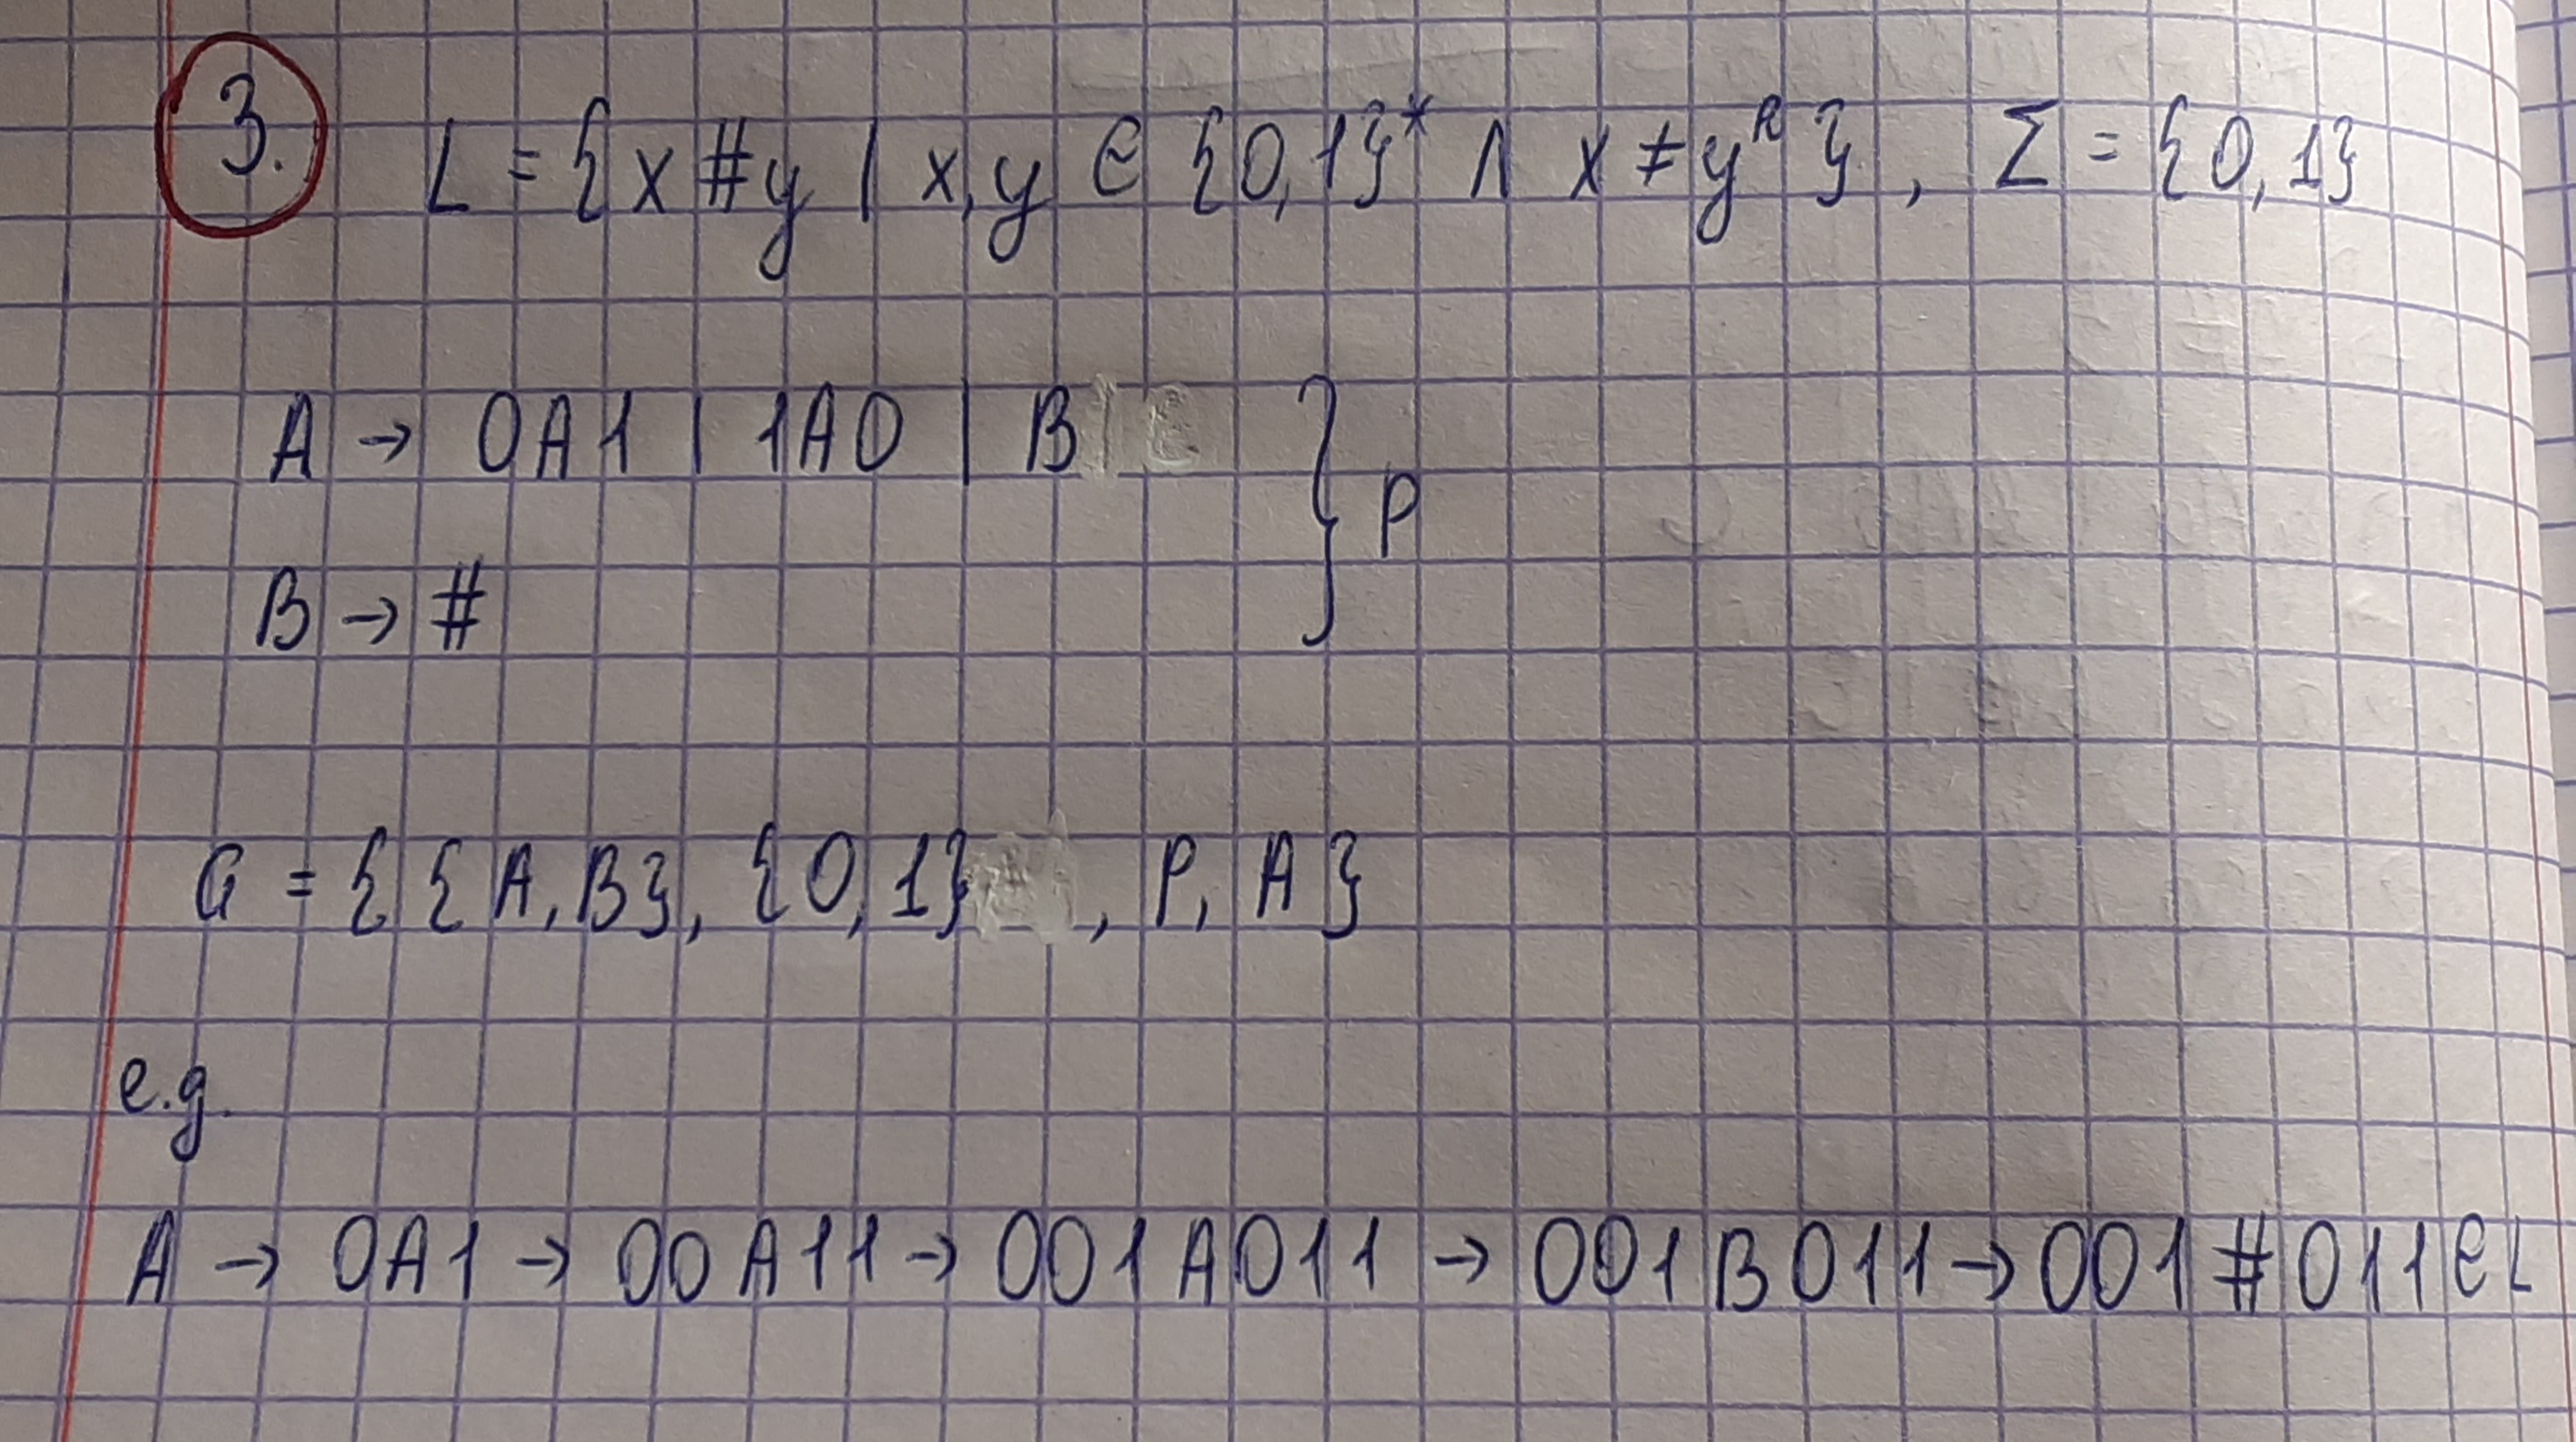 3. L = {x#y | x,y ∈ {0,1}* ∧ x ≠ y^R}, Σ = {0,1}
A → 0A1 | 1A0 | B
B → #
} P
G = {{A,B}, {0,1}, P, A}
e.g.
A → 0A1 → 00A11 → 001A011 → 001B011 → 001#011 ∈ L